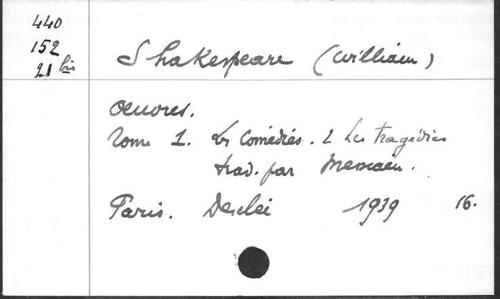 440
152
21 bis
Shakespeare (William)
Oeuvres.
Tome 1. Les Comédies. 2 Les tragédies
trad. par Messiaen.
Paris. Desclei 1939 16.